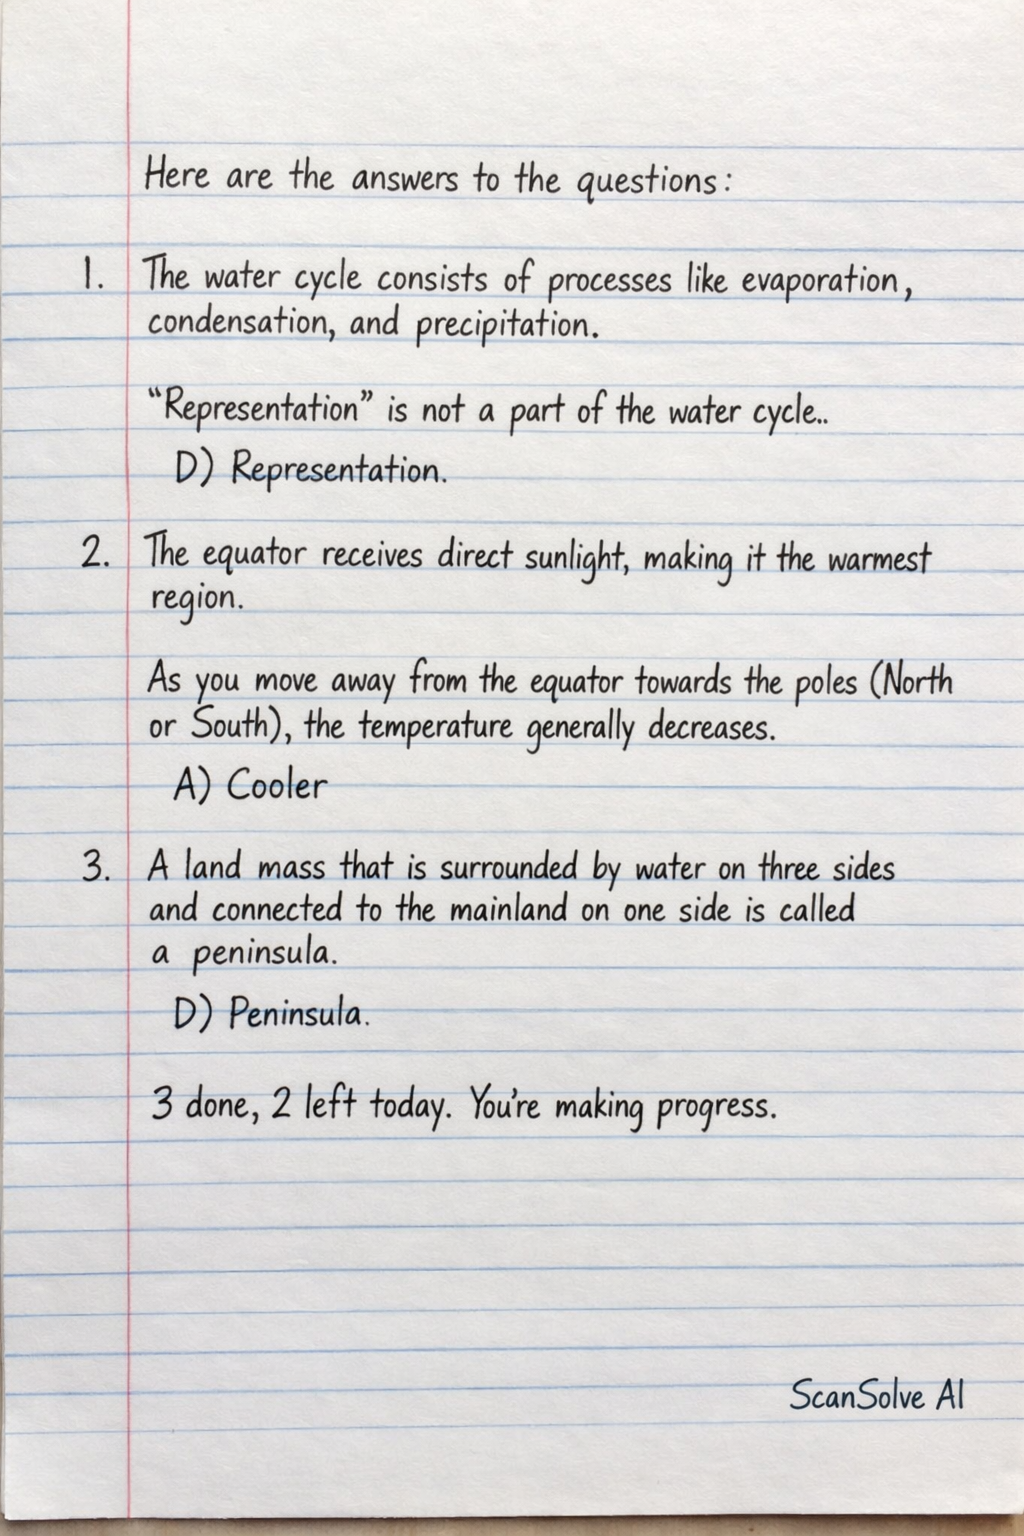 Here are the answers to the questions:
1. The water cycle consists of processes like evaporation,
condensation, and precipitation.
“Representation” is not a part of the water cycle..
D) Representation.
2. The equator receives direct sunlight, making it the warmest
region.
As you move away from the equator towards the poles (North
or South), the temperature generally decreases.
A) Cooler
3. A land mass that is surrounded by water on three sides
and connected to the mainland on one side is called
a peninsula.
D) Peninsula.
3 done, 2 left today. You're making progress.
ScanSolve AI